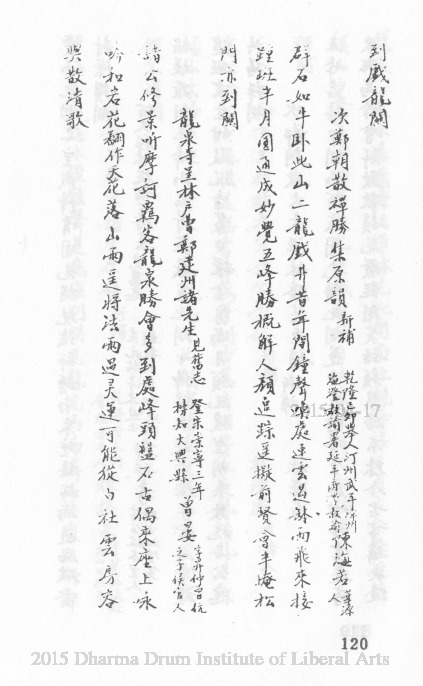 到戲龍關
次鄭朝散禪勝集原韻 新補 乾隆己卯舉人汀州武平 陳海若
群石如牛臥此山二龍戲井昔年間鐘聲喚處連雲過鉢雨飛來接
踵班半月圓通成妙覺五峰勝概解人顏追踪遙擬前賢會半掩松
門亦到關
龍泉寺呈林戶曹鄭建州諸先生 見舊志 登宋崇寧三年 林知大興縣 曾晏
諸公修景昕摩訶羈客龍泉勝會多到處峰頭盤石古偶來座上咏
吟和岩花翻作天花落山雨還將法雨過灵運可能從白社雲房容
與散清歌
2015-03-17
120
2015 Dharma Drum Institute of Liberal Arts